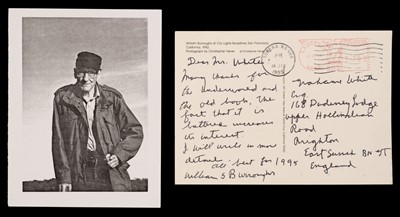 William Burroughs at City Lights Bookstore, San Francisco
California, 1992
Photograph by Christopher
Dear Mr. White
Many thanks for
the underword and
the old book, the
fact that it is
battered increases
its interest
I will write in more
detail.
All best for 1995
William S Burroughs
Grahame White
Esq
168 Dudeney Lodge
Upper Hollingdean
Road
Brighton
East Sussex BN
England